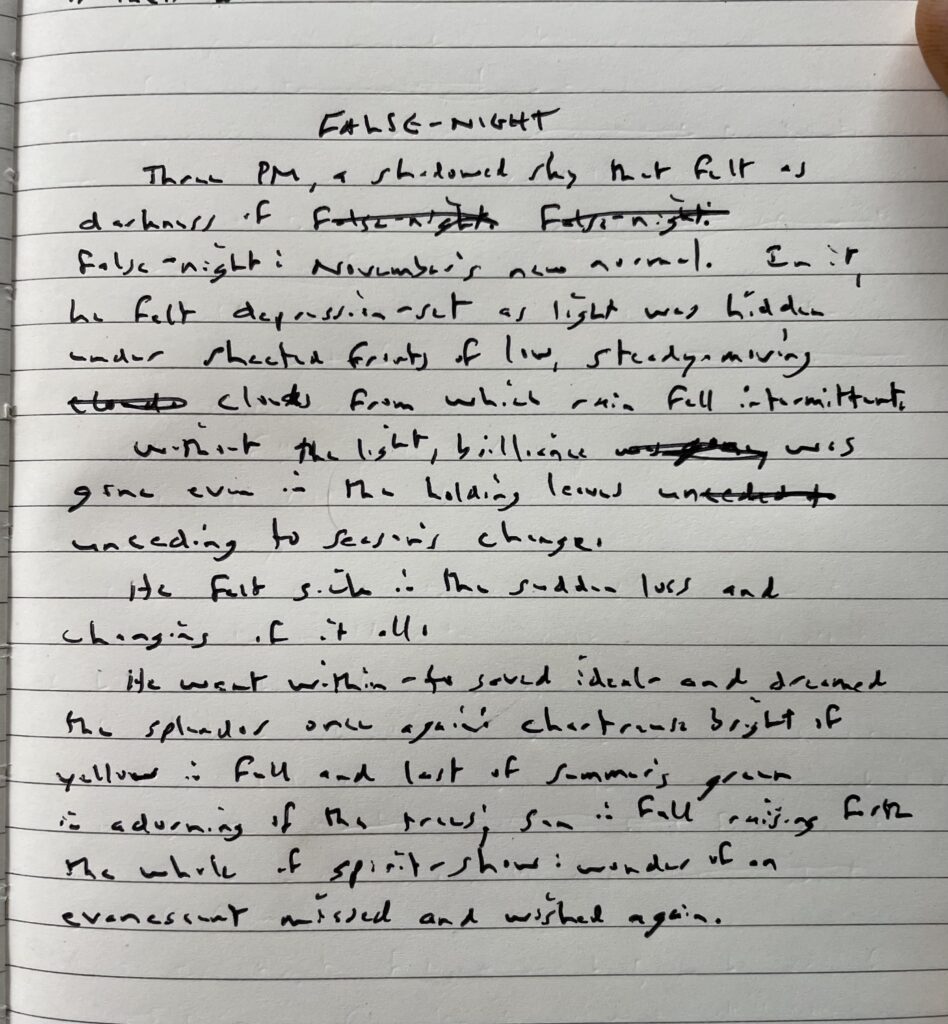 FALSE-NIGHT
Three PM, a shadowed sky that felt as
darkness of False-night. False-night:
False-night: November's new normal. In it,
he felt depression-set as light was hidden
under sheeted fronts of low, steady-moving
clouds clouds from which rain fell intermittent.
Without the light, brilliance was
gone even in the holding leaves unceded to
unceding to season's change.
He felt sick in the sudden loss and
changing of it all.
He went within-to saved ideal- and dreamed
the splendor once again: chartreuse bright of
yellow in fall and last of summer's green
in adorning of the trees; sun in fall raising forth
the whole of spirit-show: wonder of an
evanescent missed and wished again.